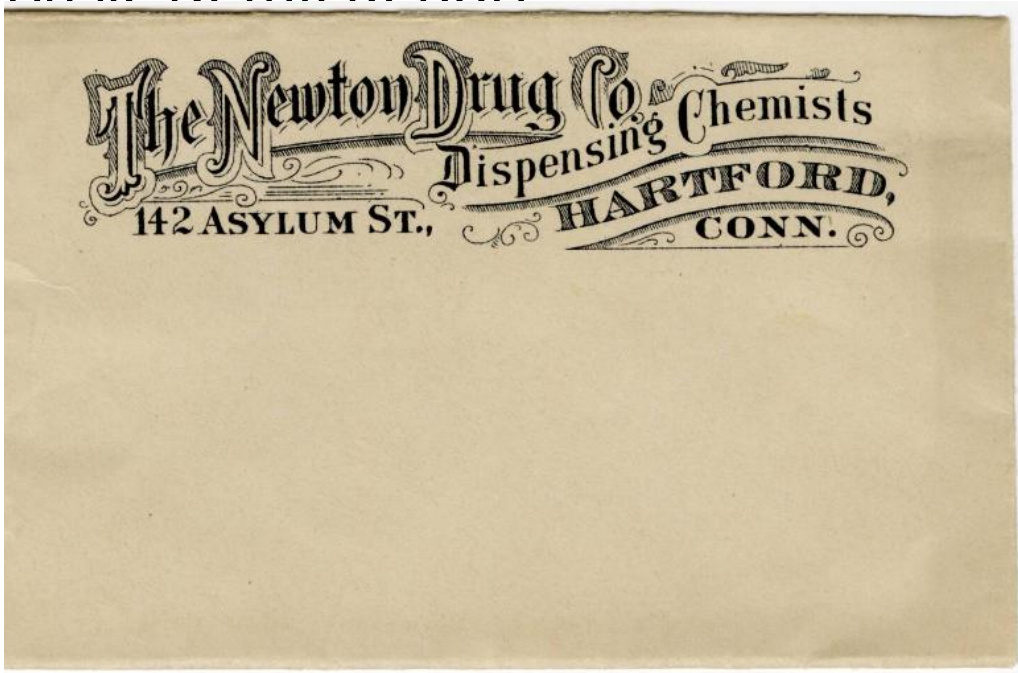 The Newton Drug Co.
Dispensing Chemists
142 ASYLUM ST.,
HARTFORD,
CONN.